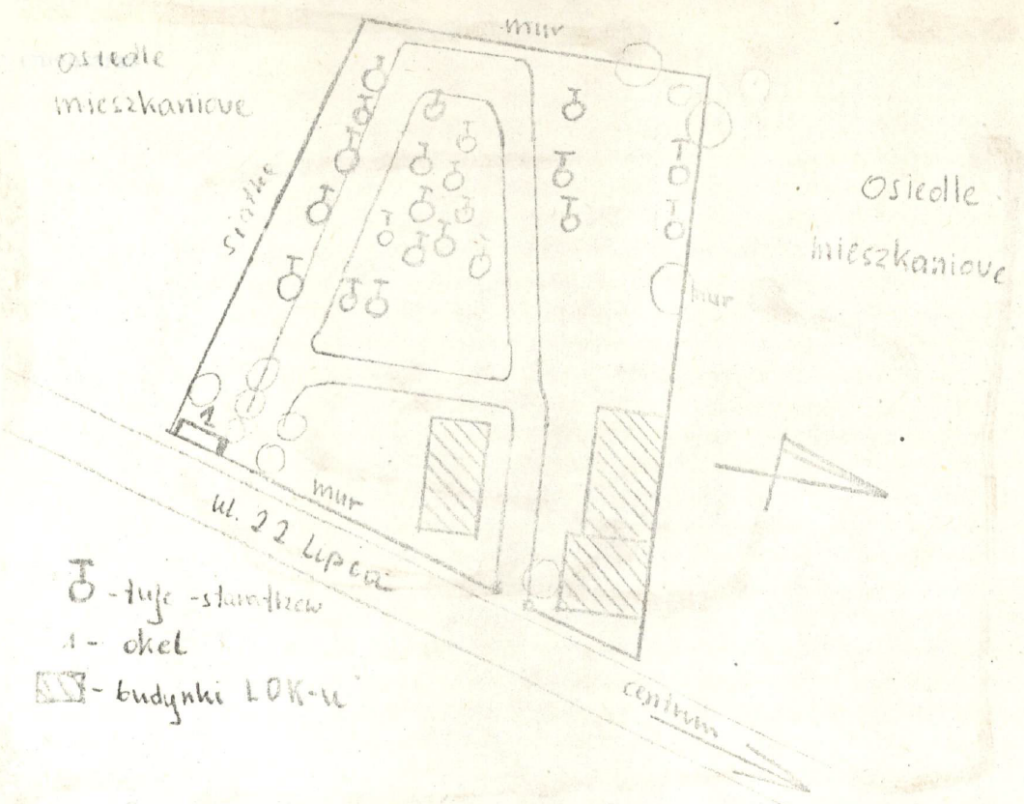 mur
osiedle
mieszkaniowe
siatka
Osiedle
mieszkaniowe
mur
1
mur
ul. 22 Lipca
- tuje -
1 - okel
- budynki LOK-u
centrum